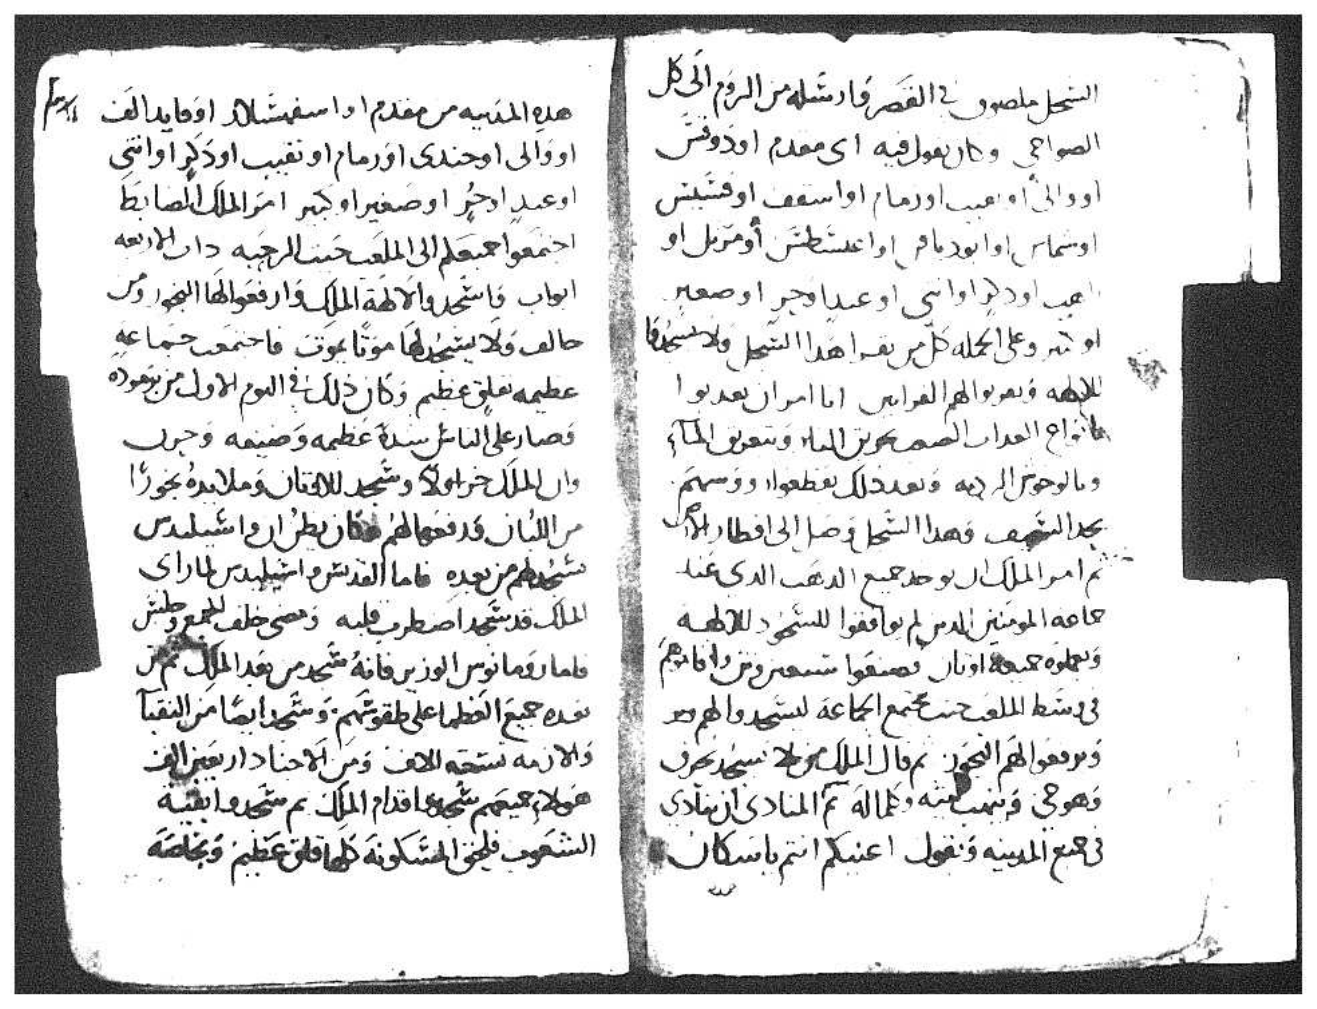 السجل ملصوق في القصر فارسله من الروم الى كل
النواحي وكان يقول فيه اى مقدم او دوقس
او والى او نقيب او زمام او اسقف او قسيس
او شماس او ابودياقن او اغنسطس أو مرتل او
راهب او ذكرٍ او انثى او عبد او حرٍ او صغير
او كبير وعلى الجمله كل من يقرا هذا السجل ولا يسجد
للالهه ويقربوا لهم القرابين انا امر ان يعذبوا
بانواع العذاب الصعب بحريق النار وتغريق المآء
وبالوحوش الرديه وبعد ذلك يقطعوا رووسهم
بحد السيف وهذا السجل وصل الى اقطار الارض
ثم امر الملك ان يوخد جميع الدهب الدى عند
جماعه المومنين الدين لم يوافقوا للسجود للالهه
ويعملوه جميعه اوثان فصنعوا سبعين وثن واقاموهم
فى وسط الملعب حيث مجتمع الجماعة ليسجدوا لهم
ويرفعوا لهم البخور ثم قال الملك من لا يسجد يحرق
وهو حي وينهب بيته وكماله ثم المنادى ان ينادي
فى جميع المدينه ويقول اعنيكم انتم ياسكان
هده المدينه من مقدم او اسفهسلار او قايد الف
او والى او جندى او زمام او نقيب او ذكرٍ او انثى
او عبدٍ او حُرٍ او صغير او كبير امر الملك الضابط
اجتمعوا جميعكم الى الملعب حيث الرحبه ذات الاربعه
ابواب فاسجدوا لالهة الملك وارفعوا لها البخور ومن
خالف ولا يسجد لها موتًا يموت فاجتمعت جماعه
عظيمه بقلق عظيم وكان ذلك في اليوم الاول من
فصار على الناس شدة عظيمه وضيقه وحزن
وان الملك خر اولا وسجد للاوثان وملا يده بخورًا
من اللبان قد فعهما لهم فكان بطرُان واسيليدس
يسجد لهم من بعده فاما القديس واسيليدس لما راى
الملك قد سجد اضطرب قلبه ومضى خلف الجمع وجلس
فاما رومانوس الوزير فانهُ سجد من بعد الملك ثم من
بعده جميع العظما على طقوسهم وسجد ايضًا من النقبآ
والازمه ستمه الاف ومن الاجناد اربعين الف
هولاء جميعهم سجدوا قدام الملك ثم سجدوا بقية
الشعوب فلحق المسكونه كلها قلق عظيم وبخاصة